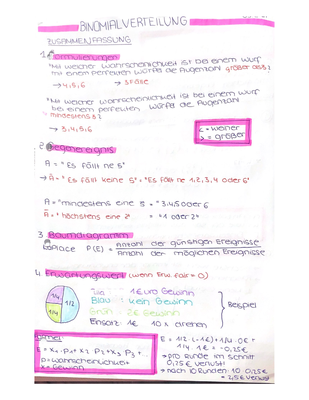 BINOMIALVERTEILUNG
ZUSAMMENFASSUNG
1. Formulierungen
"Mit welcher Wahrscheinlichkeit ist bei einem Wurf
mit einem perfekten Würfel die Augenzahl größer als 3?
→ 4,5,6 → 3 Fälle
"Mit welcher Wahrscheinlichkeit ist bei einem Wurf
bei einem perfekten Würfel die Augenzahl
mindestens 3?
→ 3,4,5,6
< = kleiner
> = größer
2. Gegenereignis
A = "Es fällt ne 5"
→ Ā = "Es fällt keine 5" = "Es fällt ne 1,2,3,4 oder 6"
A = "mindestens eine 3" = "3,4,5 oder 6
Ā = "höchstens eine 2" = "1 oder 2"
3. Baumdiagramm
Laplace P(E) = Anzahl der günstigen Ereignisse
Anzahl der möglichen Ereignisse
4. Erwartungswert (wenn Erw. fair = 0)
1/4 1/2 1/4
1 Euro Gewinn
Blau: kein Gewinn
2€ Gewinn
Einsatz: 1€ 10x drehen
Beispiel
E = x₁·p₁+x₂ p₂+x₃ p₃+
p=Wahrscheinlichkeit
x= Gewinn
= -0,25€
→ pro Runde im Schnitt
0,25€ Verlust
→ nach 10 Runden 10·0,25€
= 2,5€ Verlust